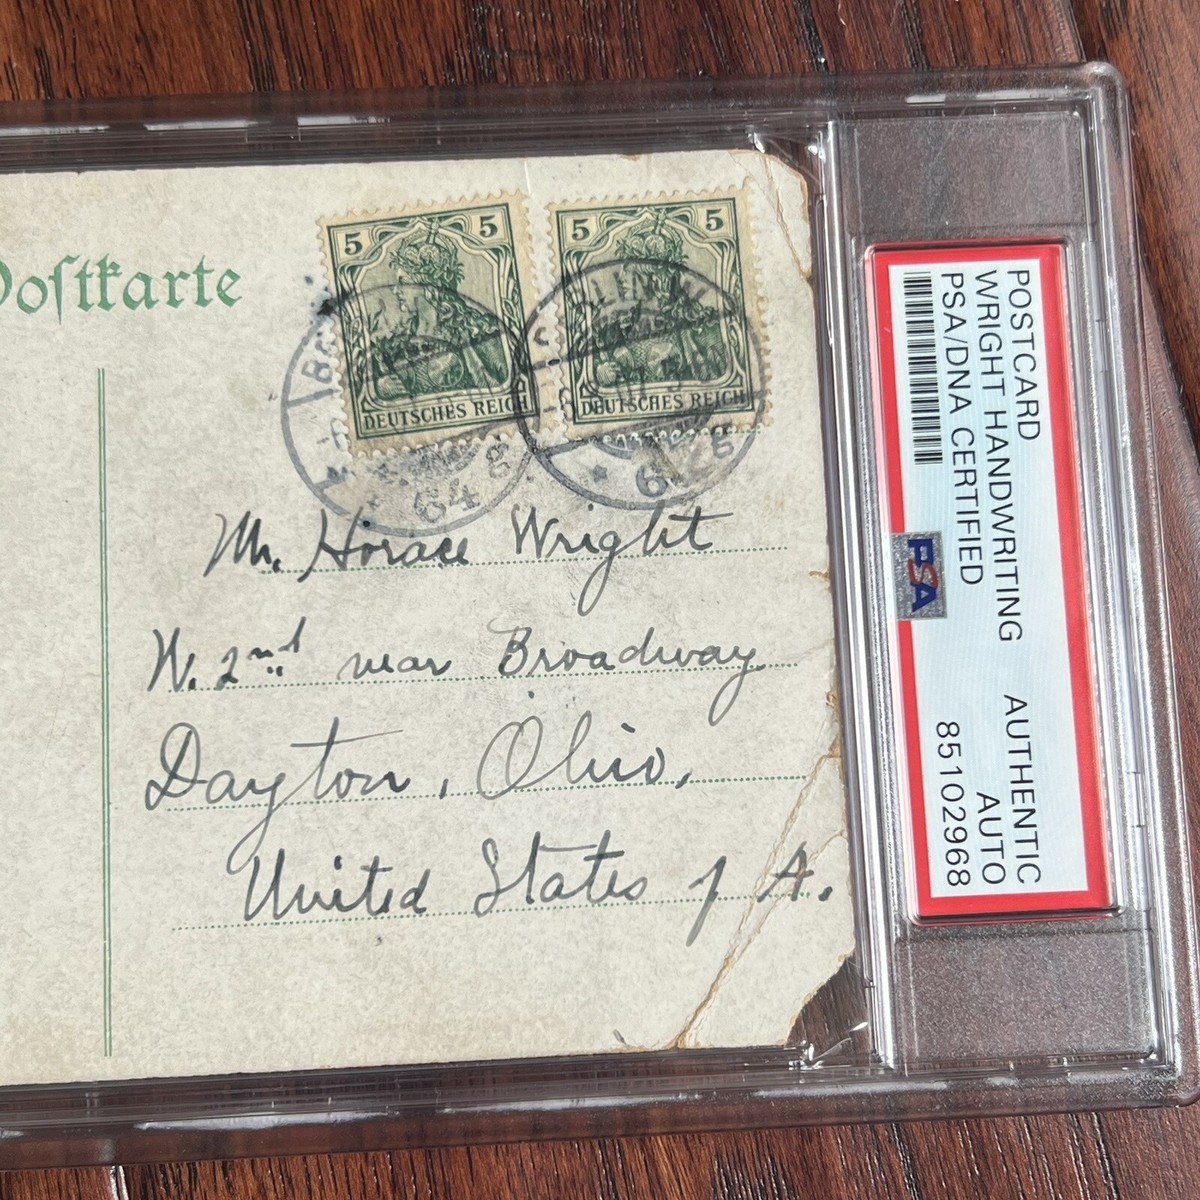 Postkarte
5 5
DEUTSCHES REICH
5 5
DEUTSCHES REICH
Mr. Horace Wright
W. 2nd near Broadway
Dayton, Ohio,
United States of A.
POSTCARD
WRIGHT HANDWRITING AUTHENTIC
PSA/DNA CERTIFIED AUTO
85102968
PSA